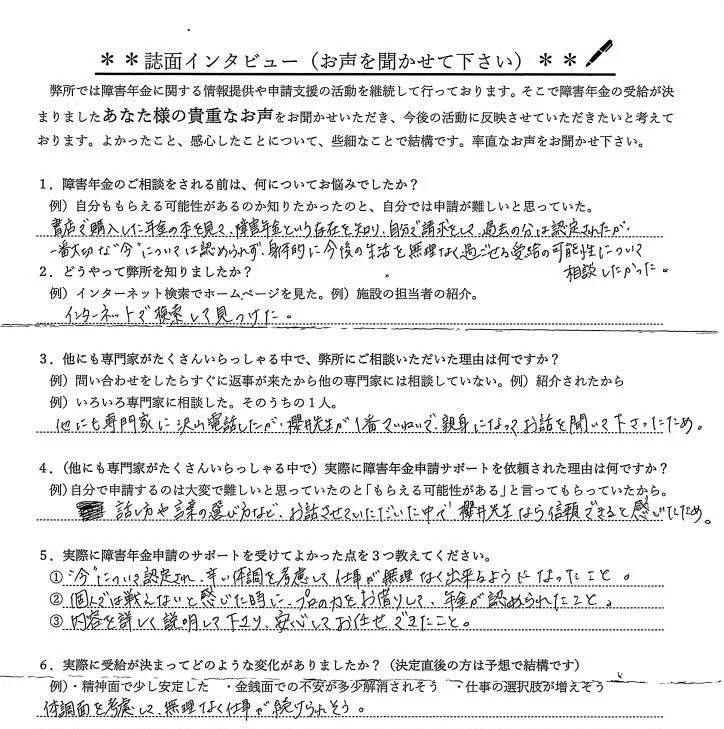 ＊＊誌面インタビュー（お声を聞かせて下さい）＊＊
弊所では障害年金に関する情報提供や申請支援の活動を継続して行っております。そこで障害年金の受給が決
まりましたあなた様の貴重なお声をお聞かせいただき、今後の活動に反映させていただきたいと考えて
おります。よかったこと、感心したことについて、些細なことで結構です。率直なお声をお聞かせ下さい。
1．障害年金のご相談をされる前は、何についてお悩みでしたか？
例）自分ももらえる可能性があるのか知りたかったのと、自分では申請が難しいと思っていた。
書店で購入した年金の本を見て、障害年金という存在を知り、自分で請求をして、過去の分は認定されたが、
一番大切な“今”については認められず、身体的に今後の生活を無理なく過ごせる受給の可能性について
相談したかった。
2．どうやって弊所を知りましたか？
例）インターネット検索でホームページを見た。例）施設の担当者の紹介。
インターネットで検索して見つけた。
3．他にも専門家がたくさんいらっしゃる中で、弊所にご相談いただいた理由は何ですか？
例）問い合わせをしたらすぐに返事が来たから他の専門家には相談していない。例）紹介されたから
例）いろいろ専門家に相談した。そのうちの１人。
他にも専門家に沢山電話したが、櫻井先生が1番ていねいで、親身になってお話を聞いて下さったため。
4．（他にも専門家がたくさんいらっしゃる中で）実際に障害年金申請サポートを依頼された理由は何ですか？
例）自分で申請するのは大変で難しいと思っていたのと「もらえる可能性がある」と言ってもらっていたから。
話し方や言葉の選び方など、お話させていただいた中で櫻井先生なら信頼できると感じたため。
5．実際に障害年金申請のサポートを受けてよかった点を３つ教えてください。
①“今”について認定され、辛い体調を考慮して仕事が無理なく出来るようになったこと。
②個人では戦えないと感じた時に、プロの力をお借りして、年金が認められたこと。
③内容を詳しく説明して下さり、安心してお任せできたこと。
6．実際に受給が決まってどのような変化がありましたか？（決定直後の方は予想で結構です）
例）・精神面で少し安定した　・金銭面での不安が多少解消されそう　・仕事の選択肢が増えそう
体調面を考慮して、無理なく仕事が続けられそう。